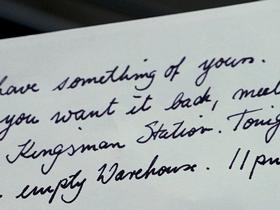 have something of yours.
you want it back, meet
Kingsman Station. Tonig
empty Warehouse. 11pm